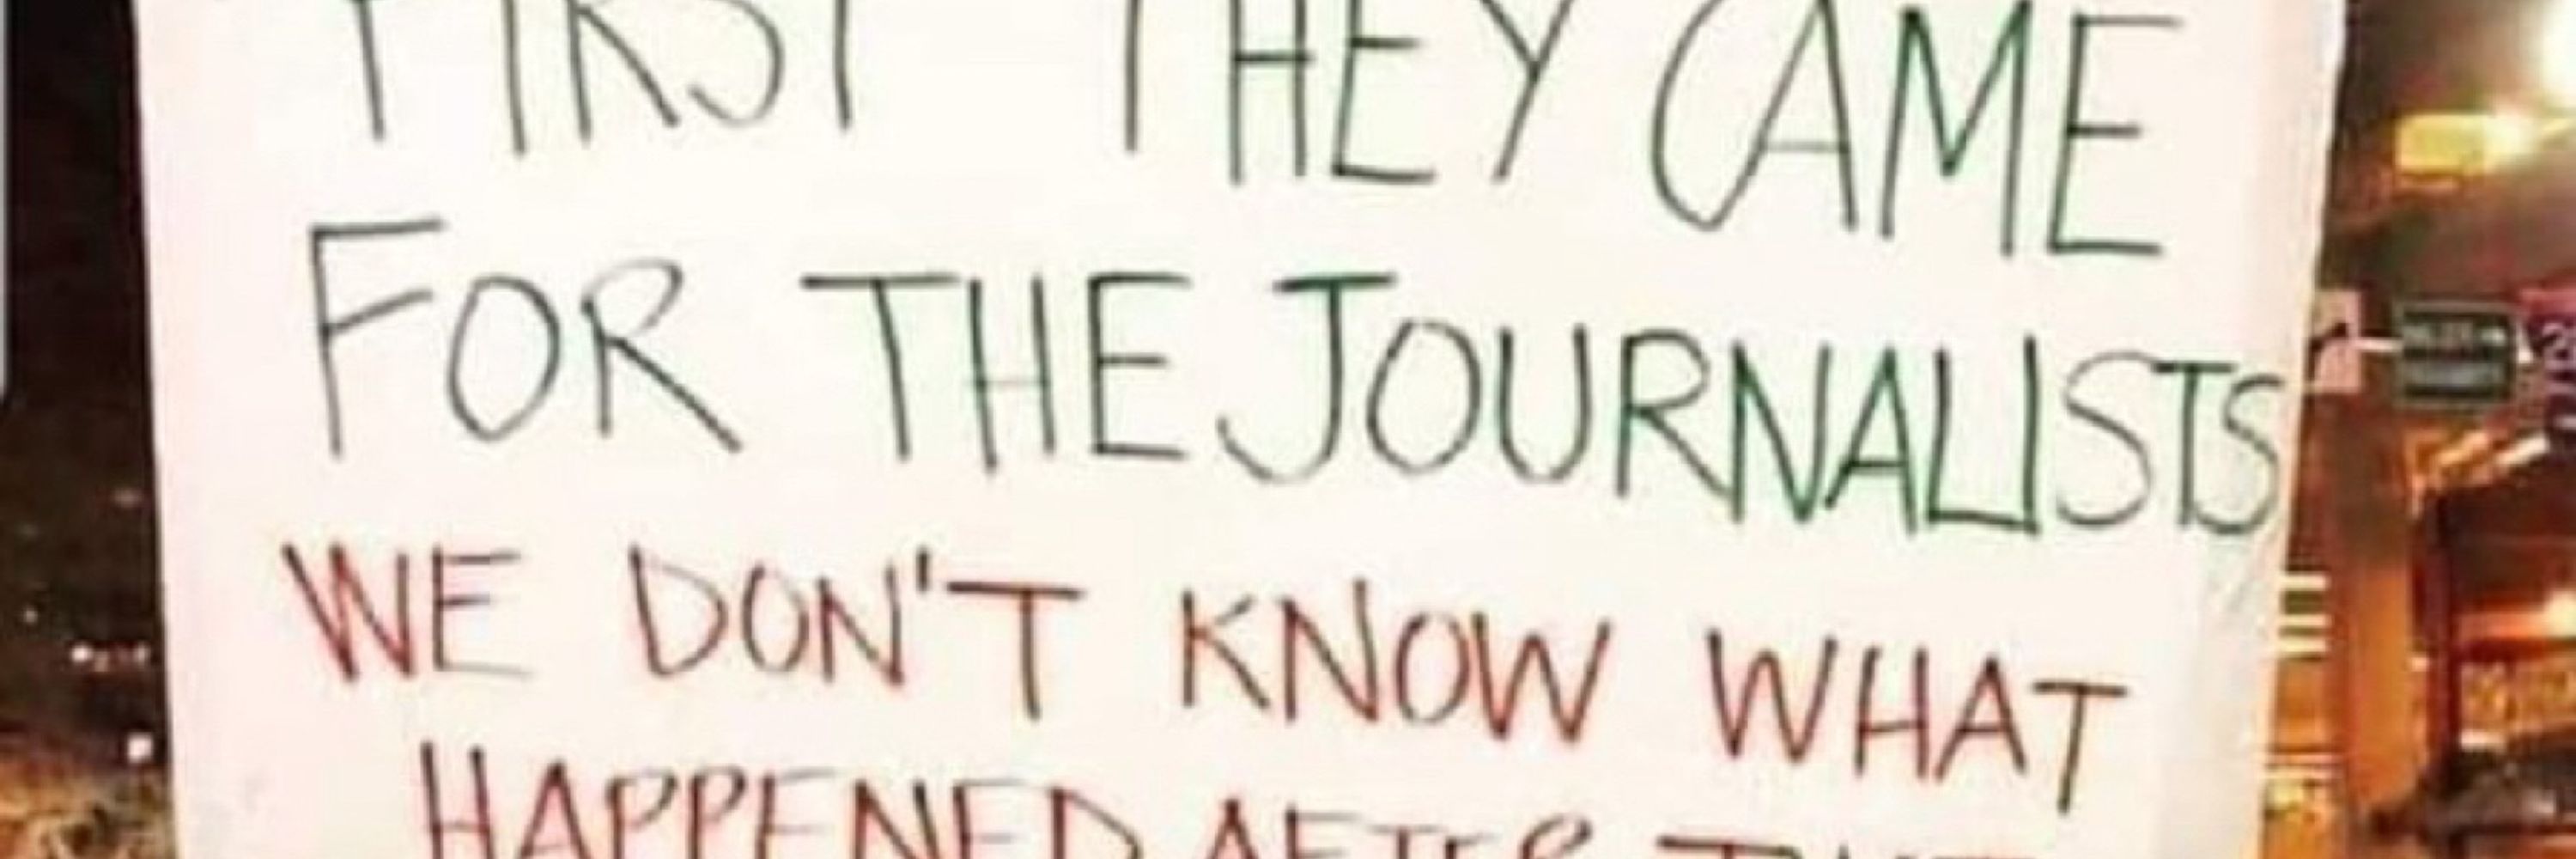 FIRST THEY CAME
FOR THE JOURNALISTS
WE DON'T KNOW WHAT
HAPPENED AFTER